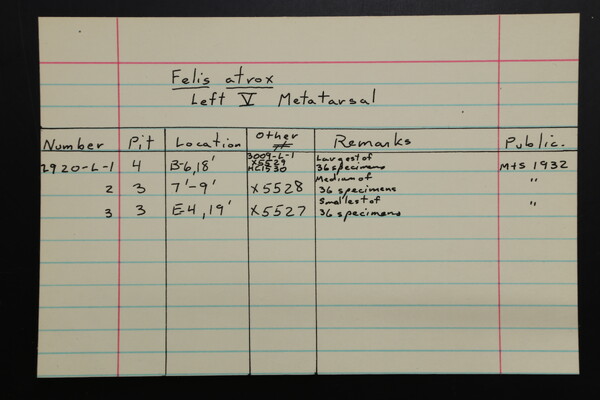 Felis atrox
Left V Metatarsal
Number Pit Location Other # Remarks Public.
2920-L-1 4 B-6, 18' 3009-L-1 X5529 HC1530 Largest of 36 specimens M+S 1932
2 3 7'-9' X5528 Median of 36 specimens "
3 3 E-4, 19' X5527 Smallest of 36 specimens "